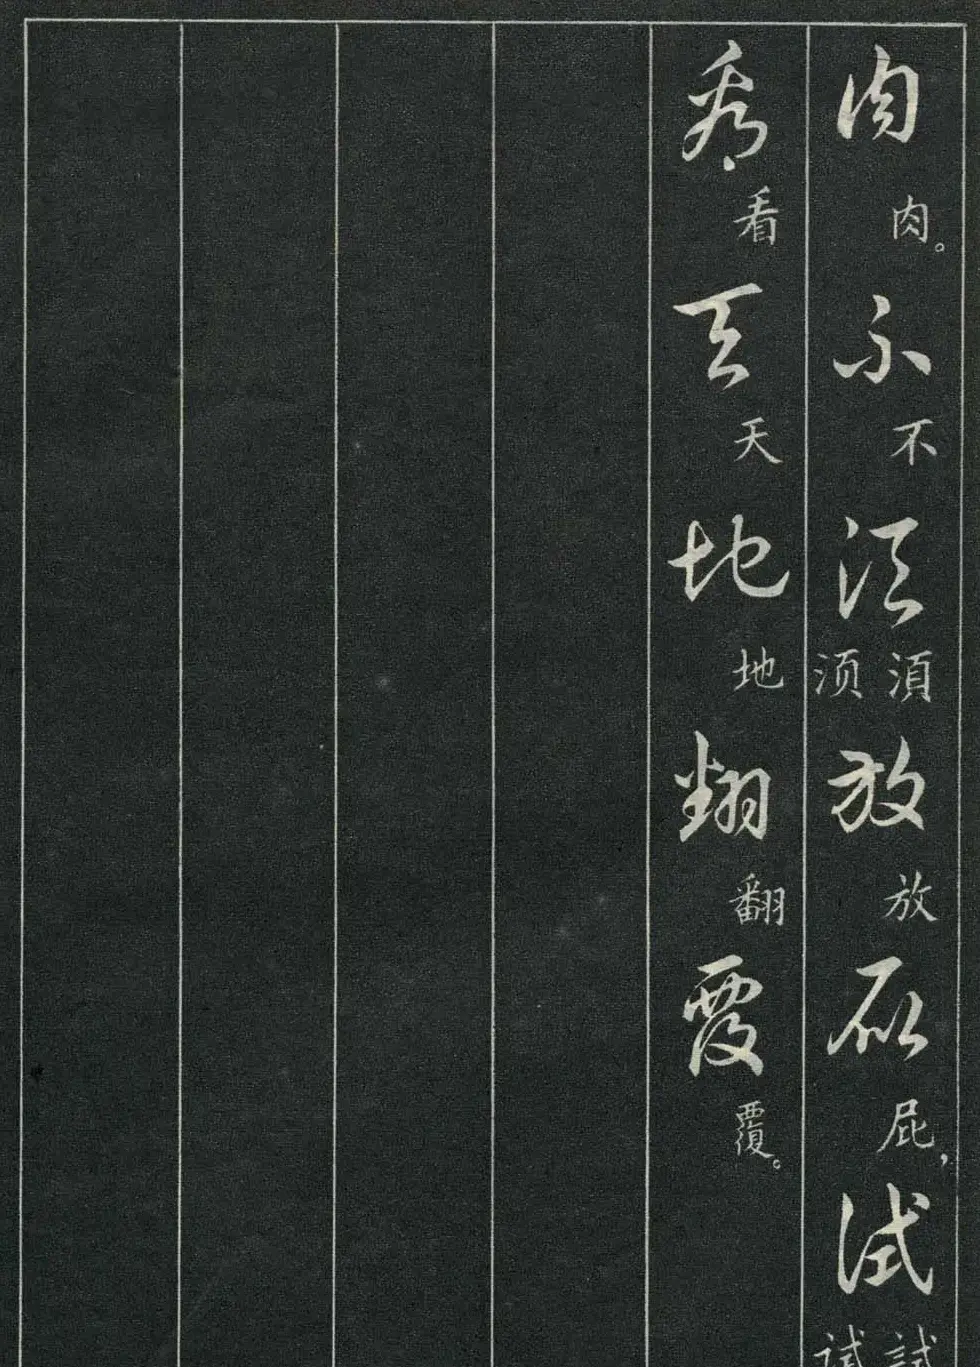 肉肉。不不须须須放放屁屁，试试試
看看天天地地翻翻覆覆。